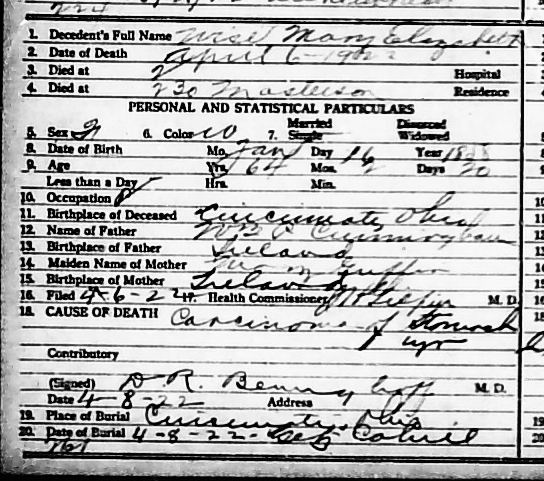 1. Decedent's Full Name Wise Mary Elizabeth
2. Date of Death April 6-1922
3. Died at Hospital
4. Died at 230 Masterson Residence
PERSONAL AND STATISTICAL PARTICULARS
Married Divorced
5. Sex F 6. Color W 7. Single Widowed
8. Date of Birth Mo. Jan Day 16 Year
9. Age Yrs. 64 Mos. 2 Days 20
Less than a Day Hrs. Min.
10. Occupation
11. Birthplace of Deceased Cincinnati Ohio
12. Name of Father Cunningham
13. Birthplace of Father Ireland
14. Maiden Name of Mother Griffin
15. Birthplace of Mother Ireland
16. Filed 4-6-22 17. Health Commissioner M. D.
18. CAUSE OF DEATH Carcinoma of Stomach
Contributory
(Signed) D. R. M. D.
Date 4-8-22 Address
19. Place of Burial Cincinnati, Ohio
20. Date of Burial 4-8-22-